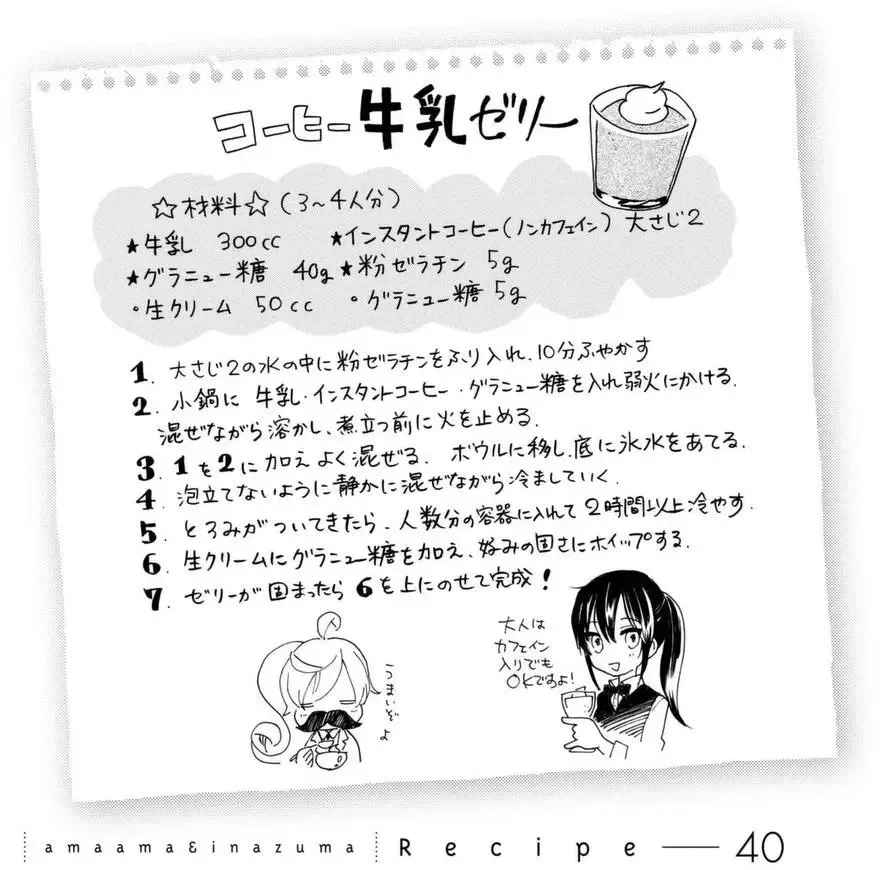 コーヒー牛乳ゼリー
☆材料☆(3~4人分)
★牛乳 300cc ★インスタントコーヒー(ノンカフェイン) 大さじ2
★グラニュー糖 40g ★粉ゼラチン 5g
・生クリーム 50cc ・グラニュー糖 5g
1. 大さじ2の水の中に粉ゼラチンをふり入れ、10分ふやかす
2. 小鍋に 牛乳・インスタントコーヒー・グラニュー糖を入れ弱火にかける.
混ぜながら溶かし、煮立つ前に火を止める.
3. 1を2に加えよく混ぜる. ボウルに移し、底に氷水をあてる.
4. 泡立てないように静かに混ぜながら冷ましていく.
5. とろみがついてきたら、人数分の容器に入れて2時間以上冷やす.
6. 生クリームにグラニュー糖を加え、好みの固さにホイップする.
7. ゼリーが固まったら6を上にのせて完成!
うまいぞよ
大人は
カフェイン
入りでも
OKですよ!
amaama&inazuma Recipe — 40